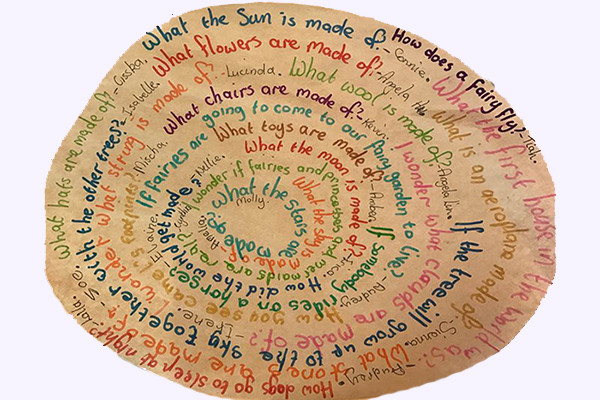 What the stars are made of?
Molly.
What the sky is made of?
Amelia.
I wonder if fairies and princesses and mermaids are real?
Lydia
What the moon is made of?- Erica.
How did the world get made?
Nellie.
What toys are made of?- Amber.
If somebody rides on a horse?
Elaine.
If fairies are going to come to our fairy garden to live? Audrey.
How you see camel's footprints?
Mischa.
What chairs are made of?- Keven.
I wonder what clouds are made of? - Irene.
I wonder what string is made of? - Lucinda.
What wool is made of?- Angela
If the tree will grow up to the sky together with the other trees?- Isabelle.
What flowers are made of?- Angela
What an aeroplane made of? - Sienna.
What stones are made of? - Zoe.
What hats are made of?- Cisska.
What the Sun is made of?- Connie.
What the first house in the world was?
- Audrey.
How dogs go to sleep at night? Laila.
How does a fairy fly?- Tiah.